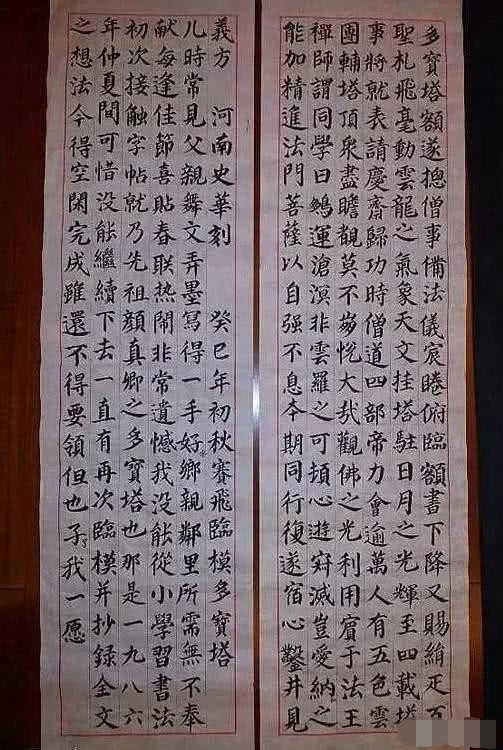 多寶塔額遂摠僧事備法儀宸睠俯臨額書下降又賜絹疋百
聖札飛毫動雲龍之氣象天文挂塔駐日月之光輝至四載塔
事將就表請慶齋歸功時僧道四部帝力會逾萬人有五色雲
團輔塔頂衆盡瞻覩莫不崩悅大哉觀佛之光利用賓于法王
禪師謂同學曰鵷運滄溟非雲羅之可頓心遊寂滅豈愛納之
能加精進法門菩薩以自强不息本期同行復遂宿心鑿井見
義方 河南史華刻 癸巳年初秋賽飛臨模多寶塔
儿時常見父親舞文弄墨寫得一手好鄉親鄰里所需無不奉
献每逢佳節喜貼春联热鬧非常遺憾我没能從小學習書法
初次接触字帖就乃先祖顔真卿之多寶塔也那是一九八六
年仲夏間可惜没能繼續下去一直有再次臨模并抄録全文
之想法今得空閑完成雖還不得要領但也了我一愿